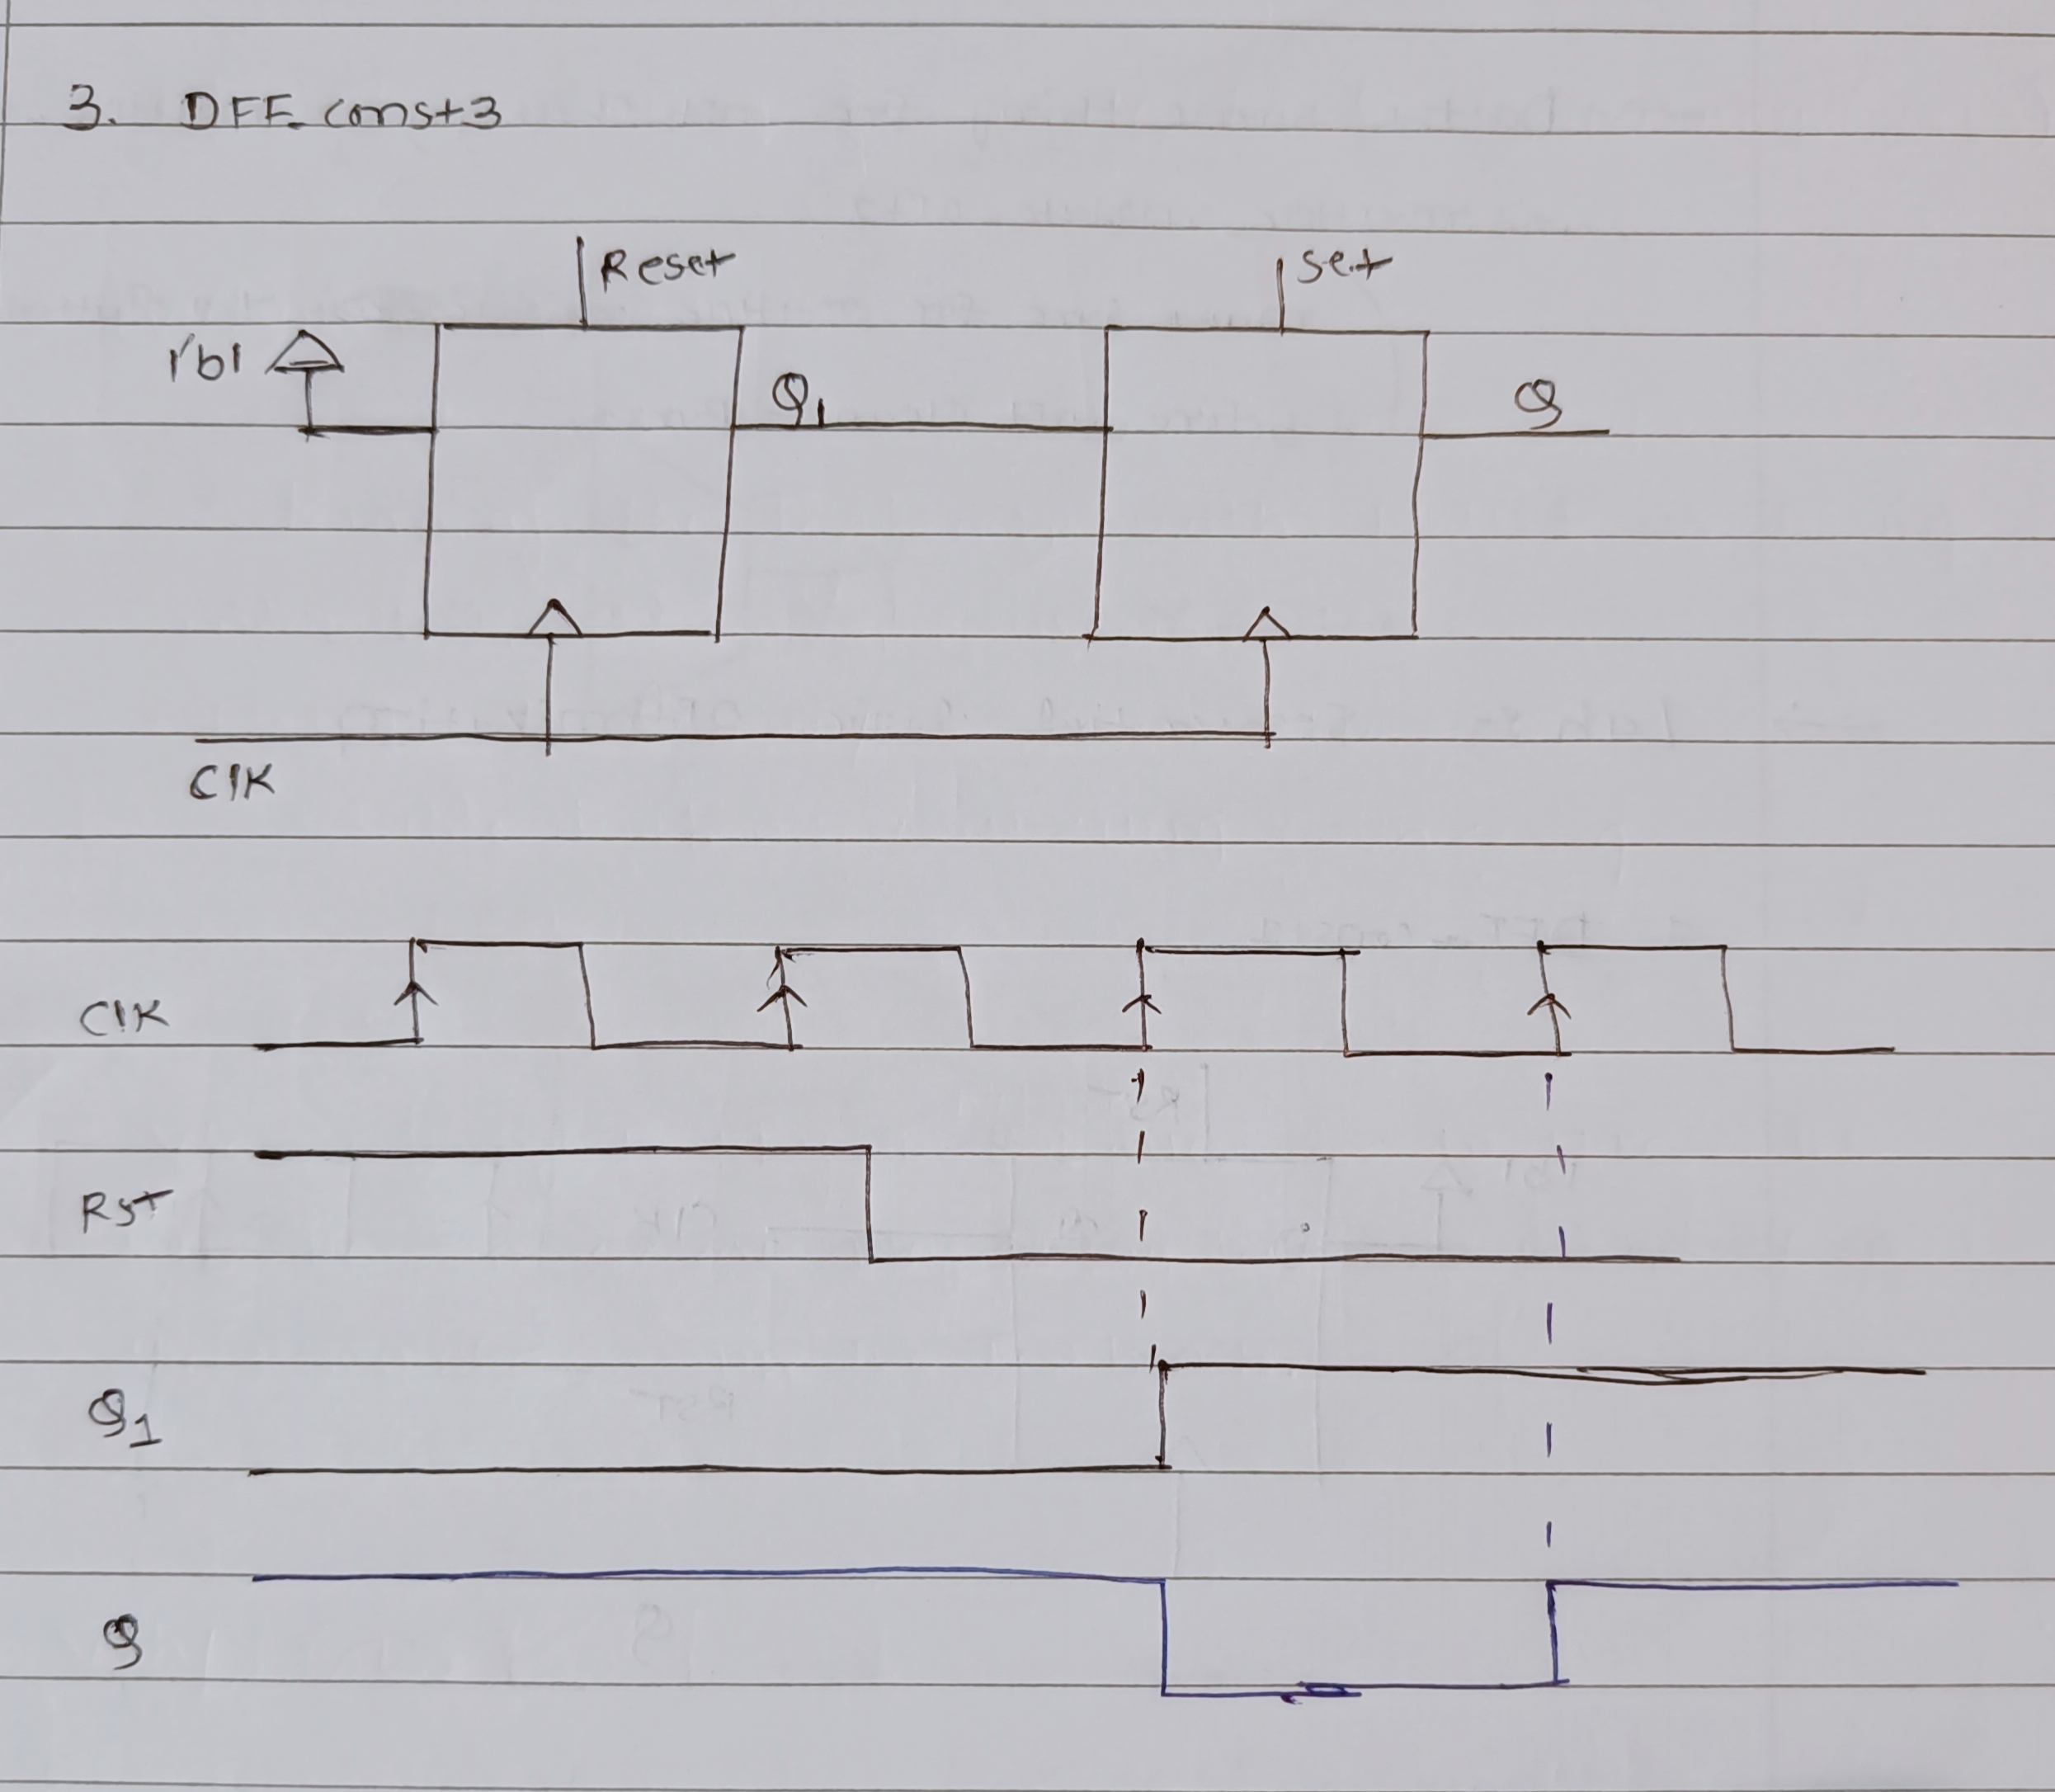 3. DFF const3
Reset
Set
1'b1
Q1
Q
Clk
Clk
Rst
Q1
Q